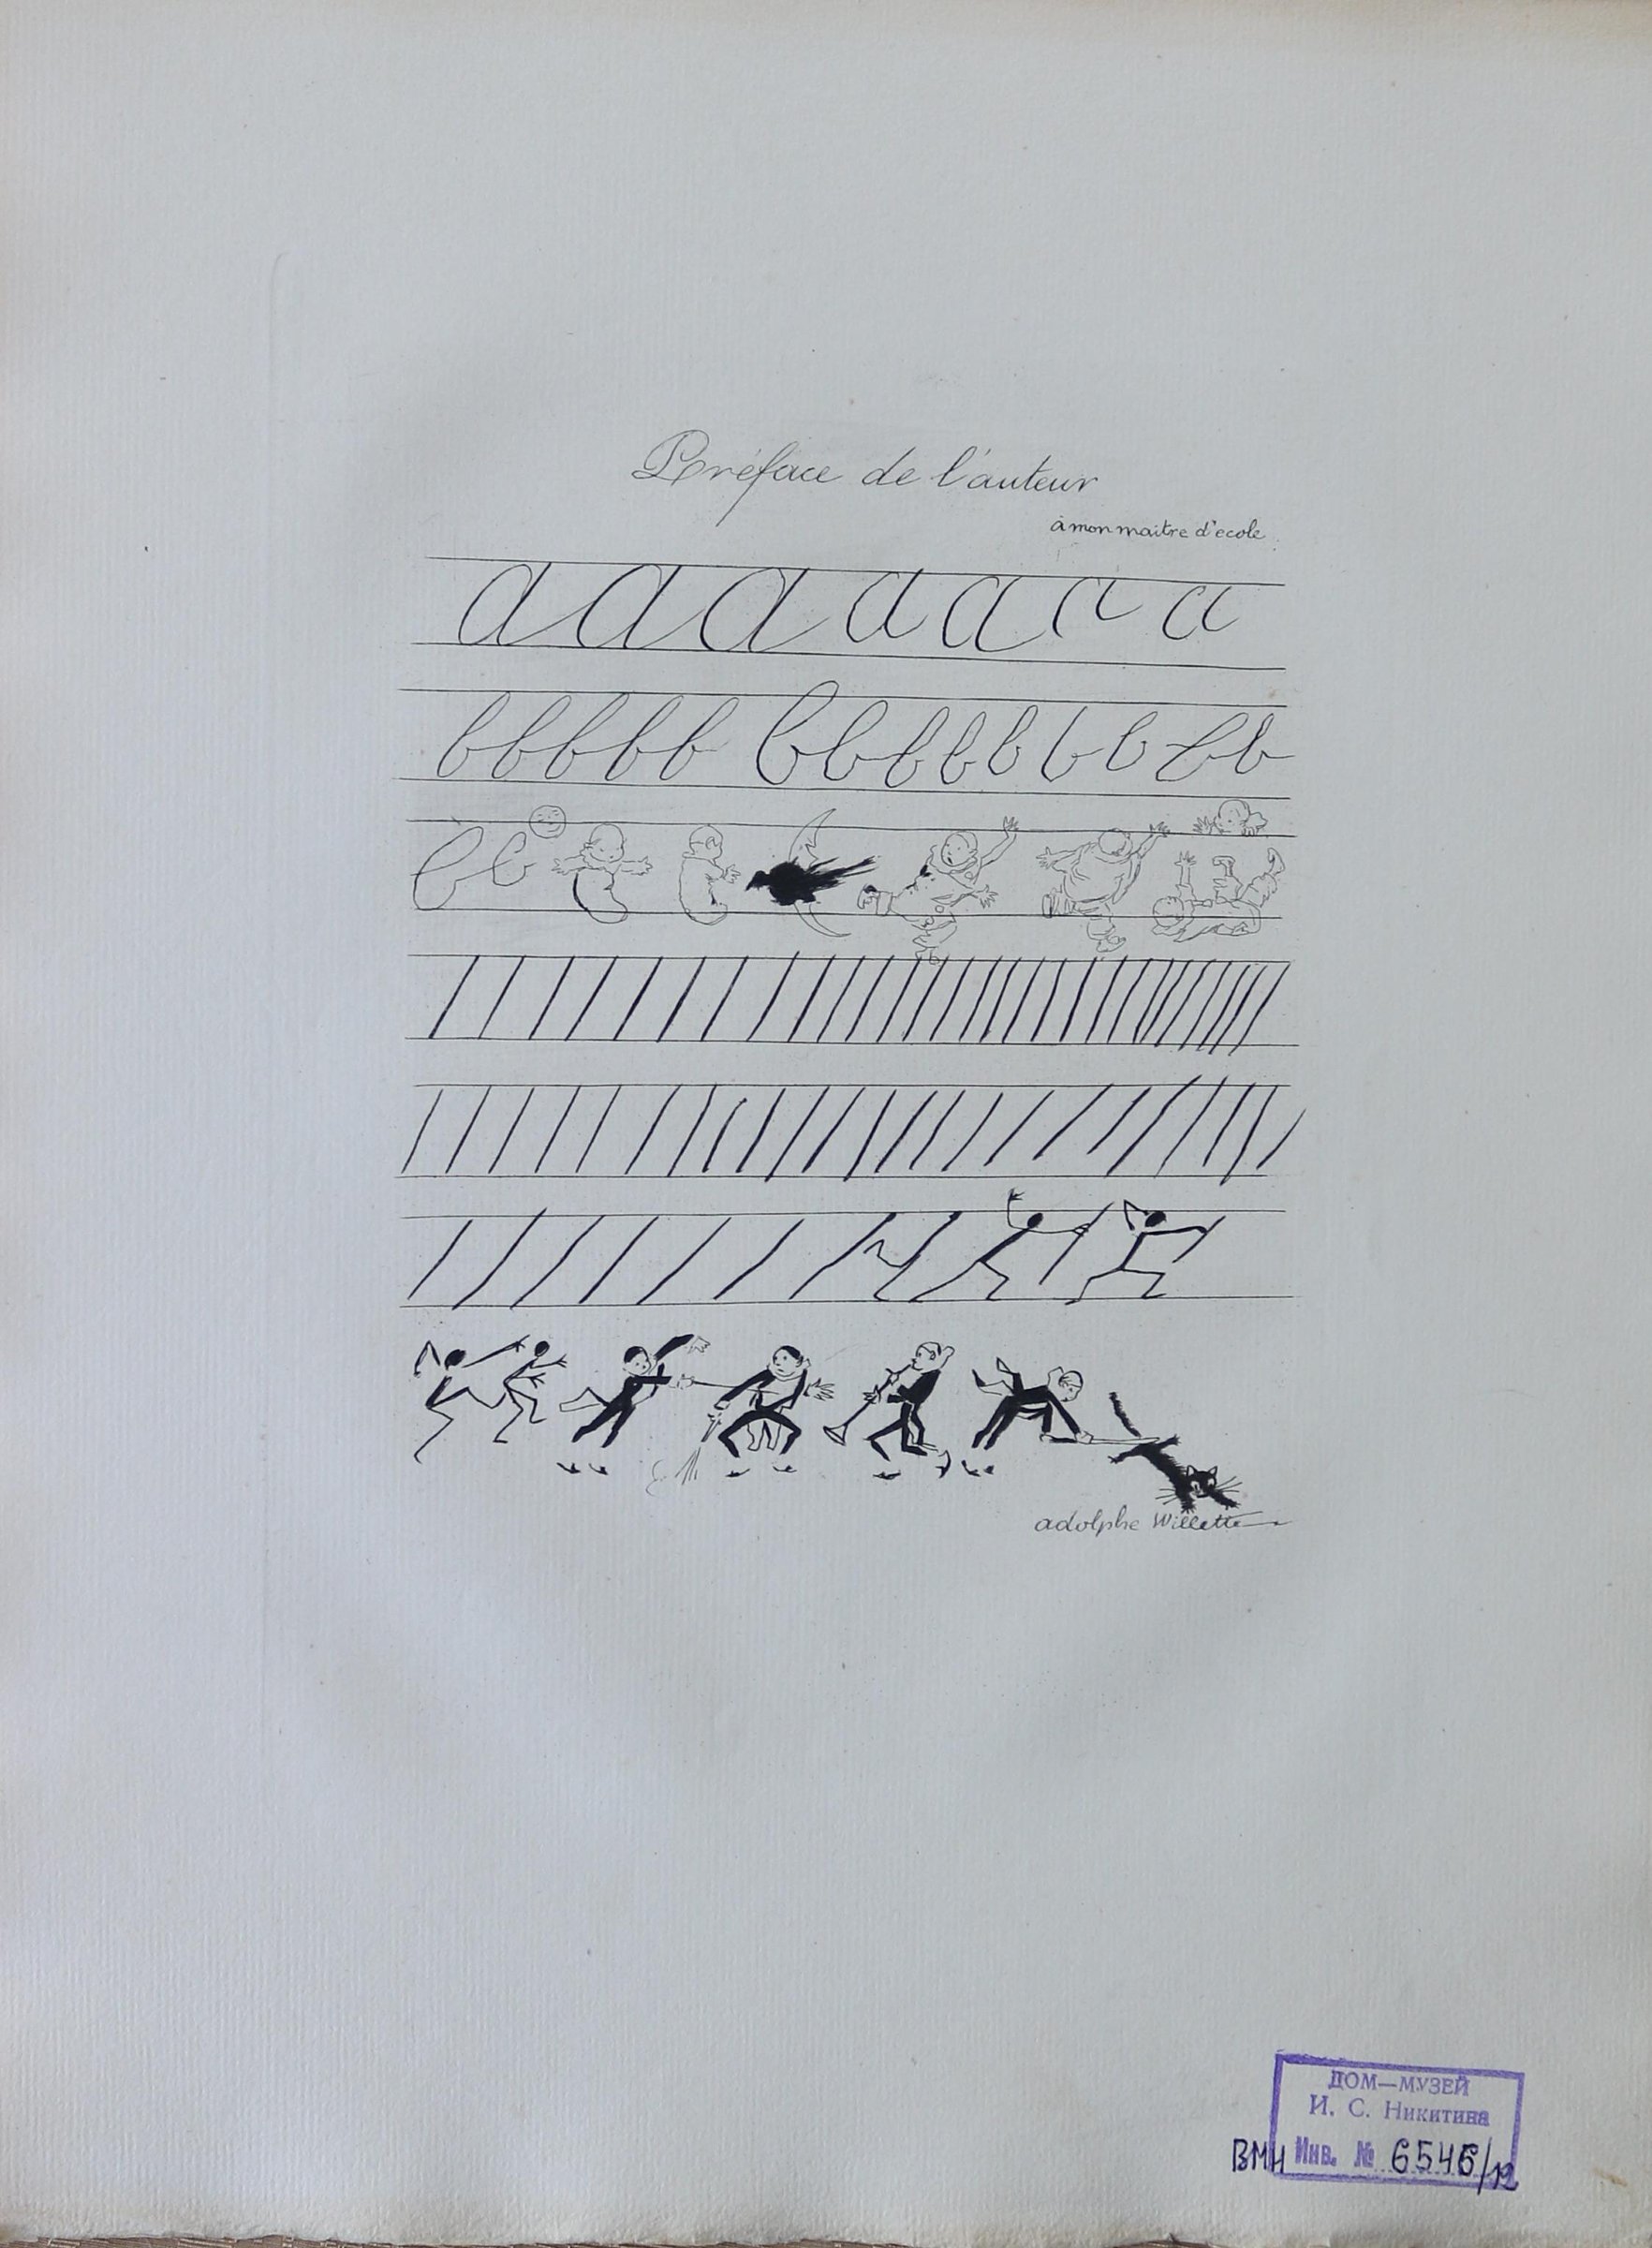 Préface de l'auteur
à mon maitre d'ecole
a a a a a a a
b b b b b b b b b b b b b b
b b
adolphe Willette
ДОМ—МУЗЕЙ
И. С. Никитина
ВМН Инв. № 6546/12